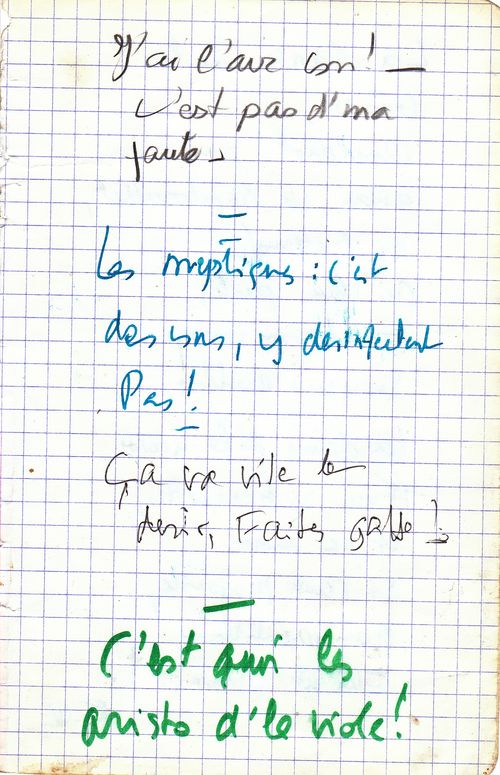 J'ai l'air con! —
c'est pas d'ma
faute
Les sceptiques : c'est
des cons, y désinfectent
Pas!
Ça va vite le
désir, Faites gaffe!
C'est qui les
aristo d'le viole!